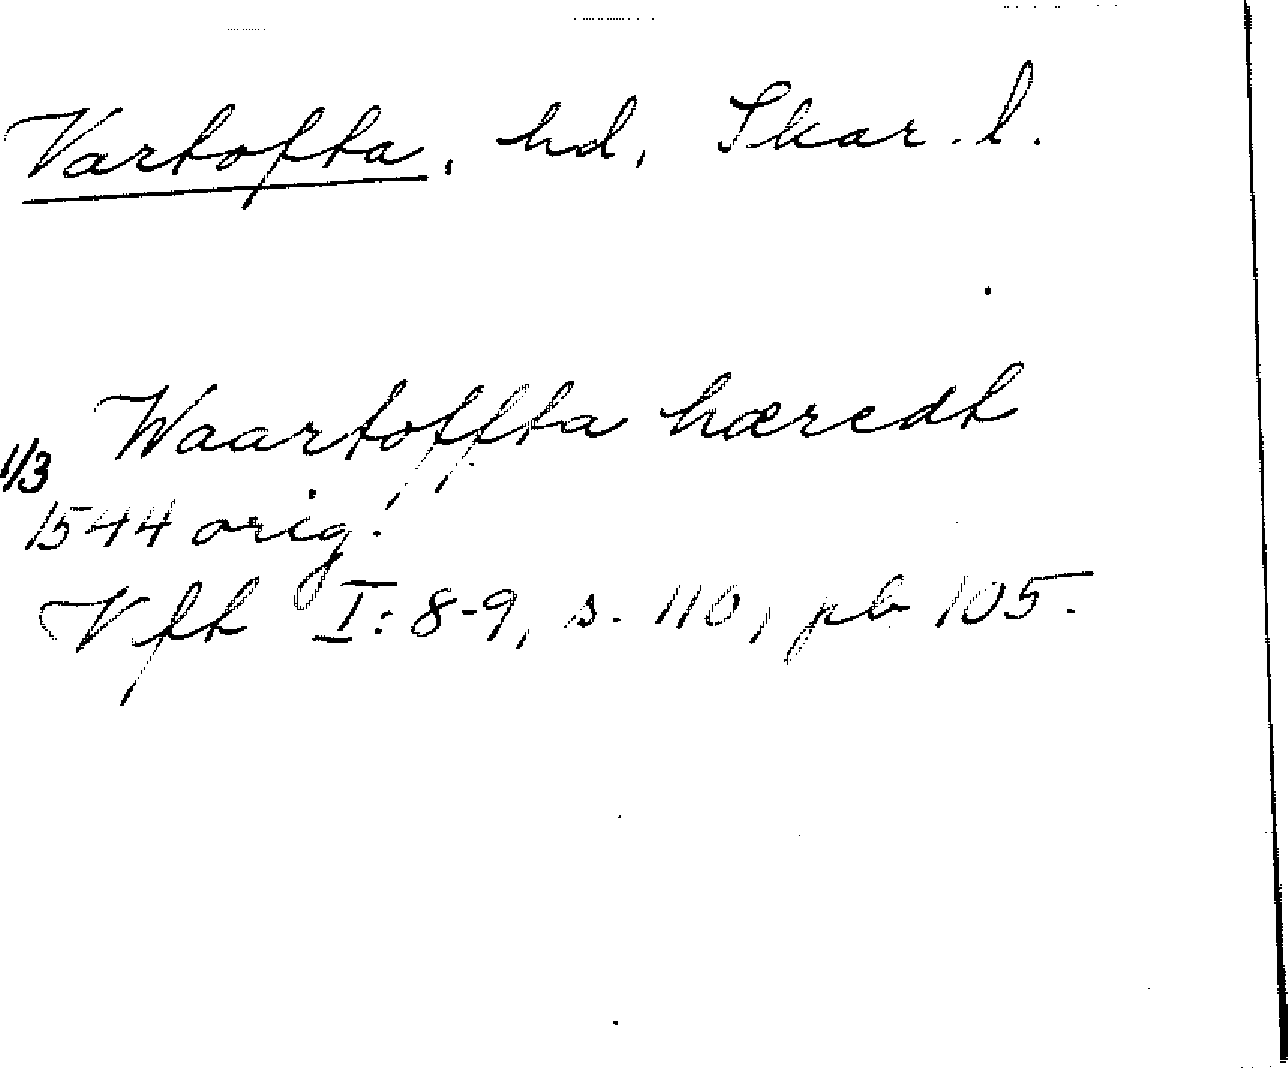 Vartofta, hd, Skar. l.
Waartoffta hæredt
1/3
1544 orig.
Vfh I: 8-9, s. 110, pb 105.